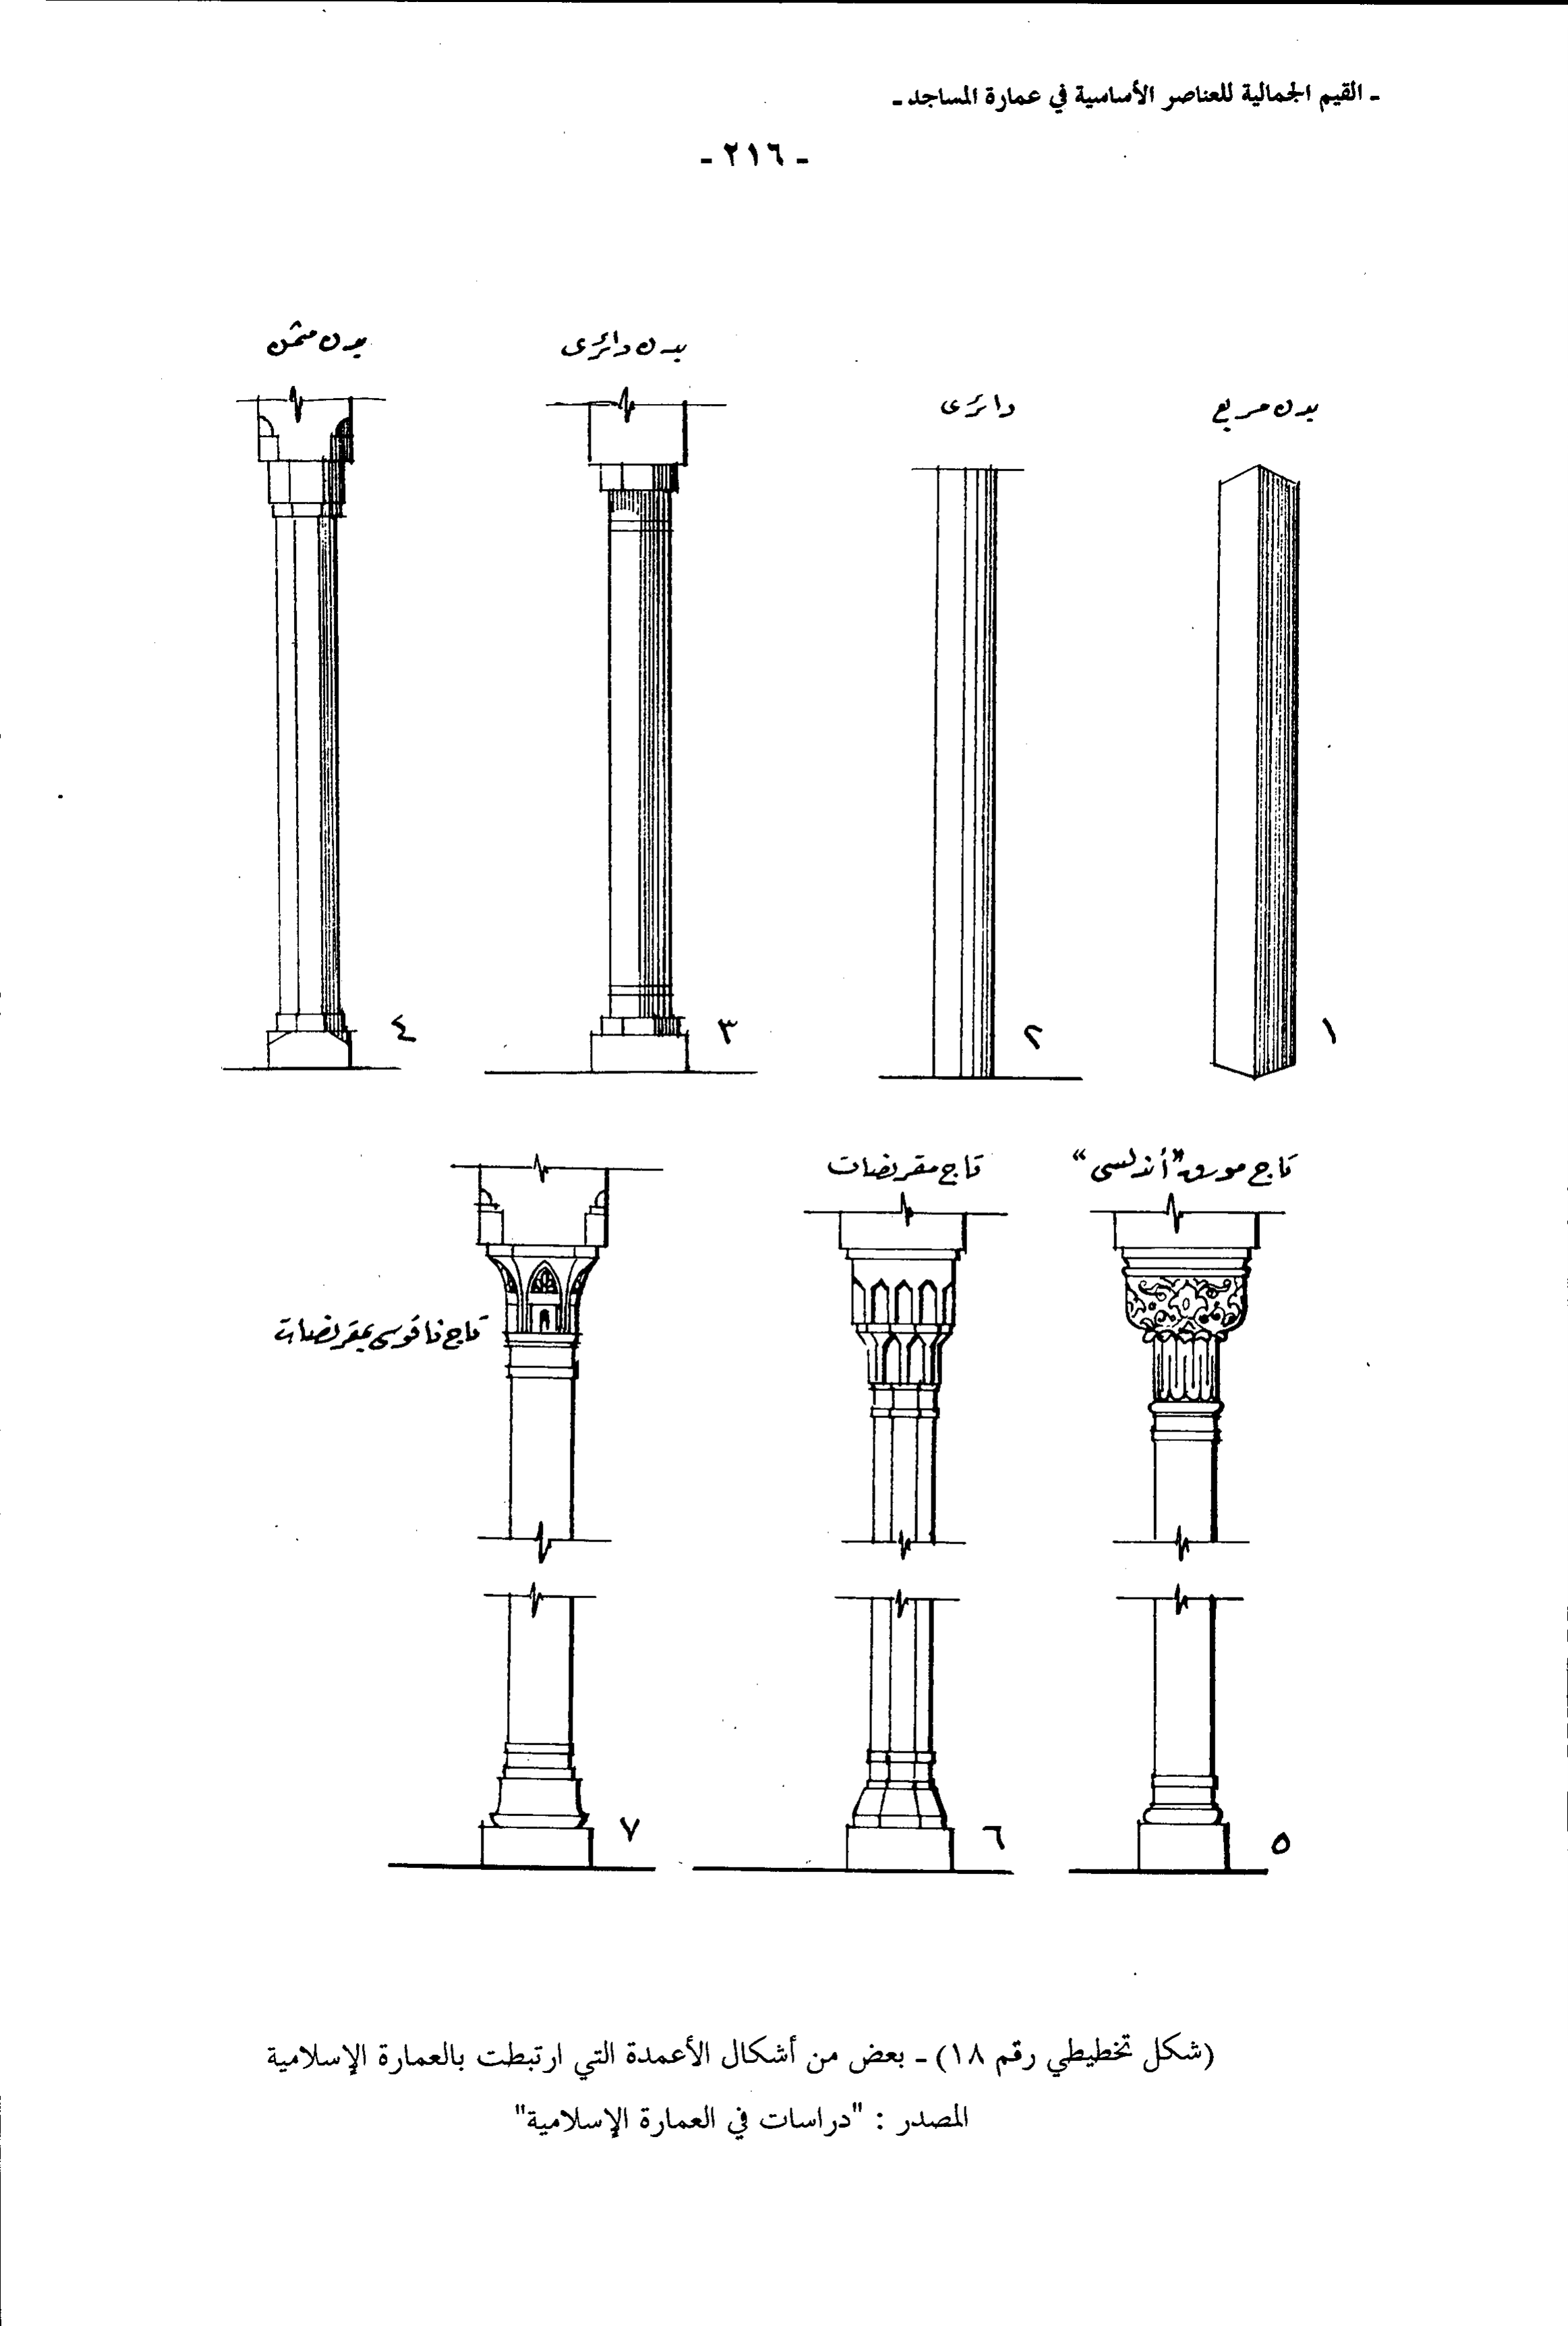 ـ القيم الجمالية للعناصر الأساسية في عمارة المساجد ـ
- ٢١٦ -
بدن مربع
دائرى
بدن دائرى
بدن مثمن
١
٢
٣
٤
تاج مورق "أندلسى"
تاج مقرنصات
تاج ناقوسى بمقرنصات
٥
٦
٧
(شكل تخطيطي رقم ١٨) ـ بعض من أشكال الأعمدة التي ارتبطت بالعمارة الإسلامية
المصدر : "دراسات في العمارة الإسلامية"